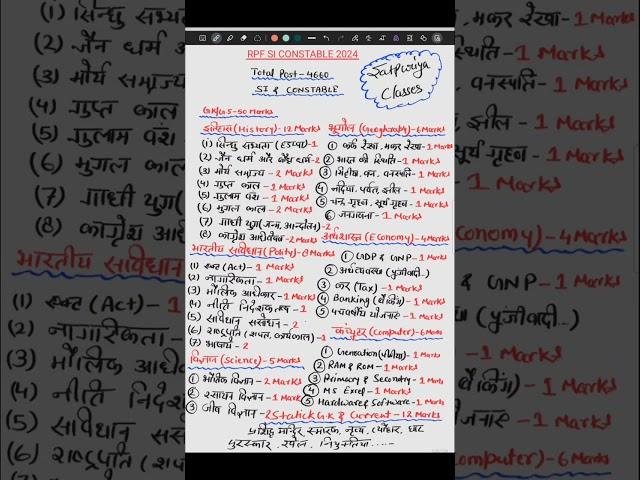 RPF SI CONSTABLE 2024
Total Post-4660
SI & CONSTABLE
Satpuriya
Classes
GK/GS-50 Marks
इतिहास (History)-12 Marks
(1) सिन्धु सभ्यता (हड़प्पा)-1
(2) जैन धर्म और बौद्ध धर्म-2
(3) मौर्य समाज्य-2 Marks
(4) गुप्त काल-1 Marks
(5) गुलाम वंश-1 Marks
(6) मुगल काल-2 Marks
(7) गांधी युग (जन्म, आन्दोलन)-2
(8) कांग्रेश अधिवेशन-2 Marks
भूगोल (Geography)-6 Marks
① कर्क रेखा, मकर रेखा-1 Marks
② भारत की स्थिति-1 Marks
③ मिट्टीया, वन, वनस्पति-1 Marks
④ नदिया, पर्वत, झील-1 Marks
⑤ चन्द्र ग्रहन, सूर्य ग्रहन-1 Marks
⑥ जनगणना-1 Marks
अर्थशास्त्र (Economy)-4 Marks
① GDP & GNP-1 Marks
② अर्थव्यवस्था (पुजीवादी..)
③ कर (Tax)-1 Marks
④ Banking (बैंकिंग)-1 Marks
⑤ पंचवर्षीय योजनाए-1 Marks
भारतीय सविधान (Polity)-8 Marks
(1) एक्ट (Act)-1 Marks
(2) नागरिकता-1 Marks
(3) मौलिक अधिकार-1 Marks
(4) नीति निर्देशक तत्व-1
(5) सविधान संसोधन-2
(6) राष्ट्रपति (शपत, कार्यकाल)-1
(7) भाषाये-2
कंप्यूटर (Computer)-6 Marks
① Generation (पीढीया)-1 Marks
② RAM & ROM-1 Marks
③ Primary & Secondry-1 Marks
④ MS Excel-1 Marks
⑤ Hardware & Software-1 Marks
विज्ञान (Science)-5 Marks
① भौतिक विज्ञान-2 Marks
② रसायन विज्ञान-1 Marks
③ जीव विज्ञान-2
Statick G.K & Current-12 Marks
प्रसिद्ध मन्दिर, स्मारक, नृत्य, त्यौहार, घाट
पुरस्कार, खेल, नियुक्तिया.....